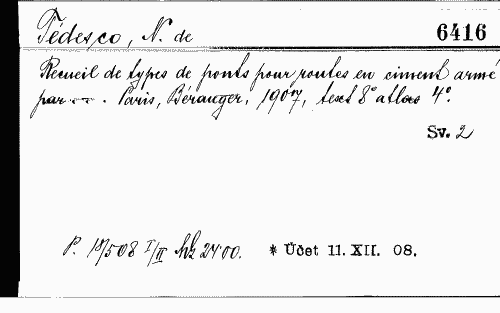 Tédesco, N. de 6416
Recueil de types de ponts pour routes en ciment armé
par --- . Paris, Béranger, 1907, text 8° atlas 4°.
Sv. 2
P. 18/508 I/II 2400. * Účet 11. XII. 08.